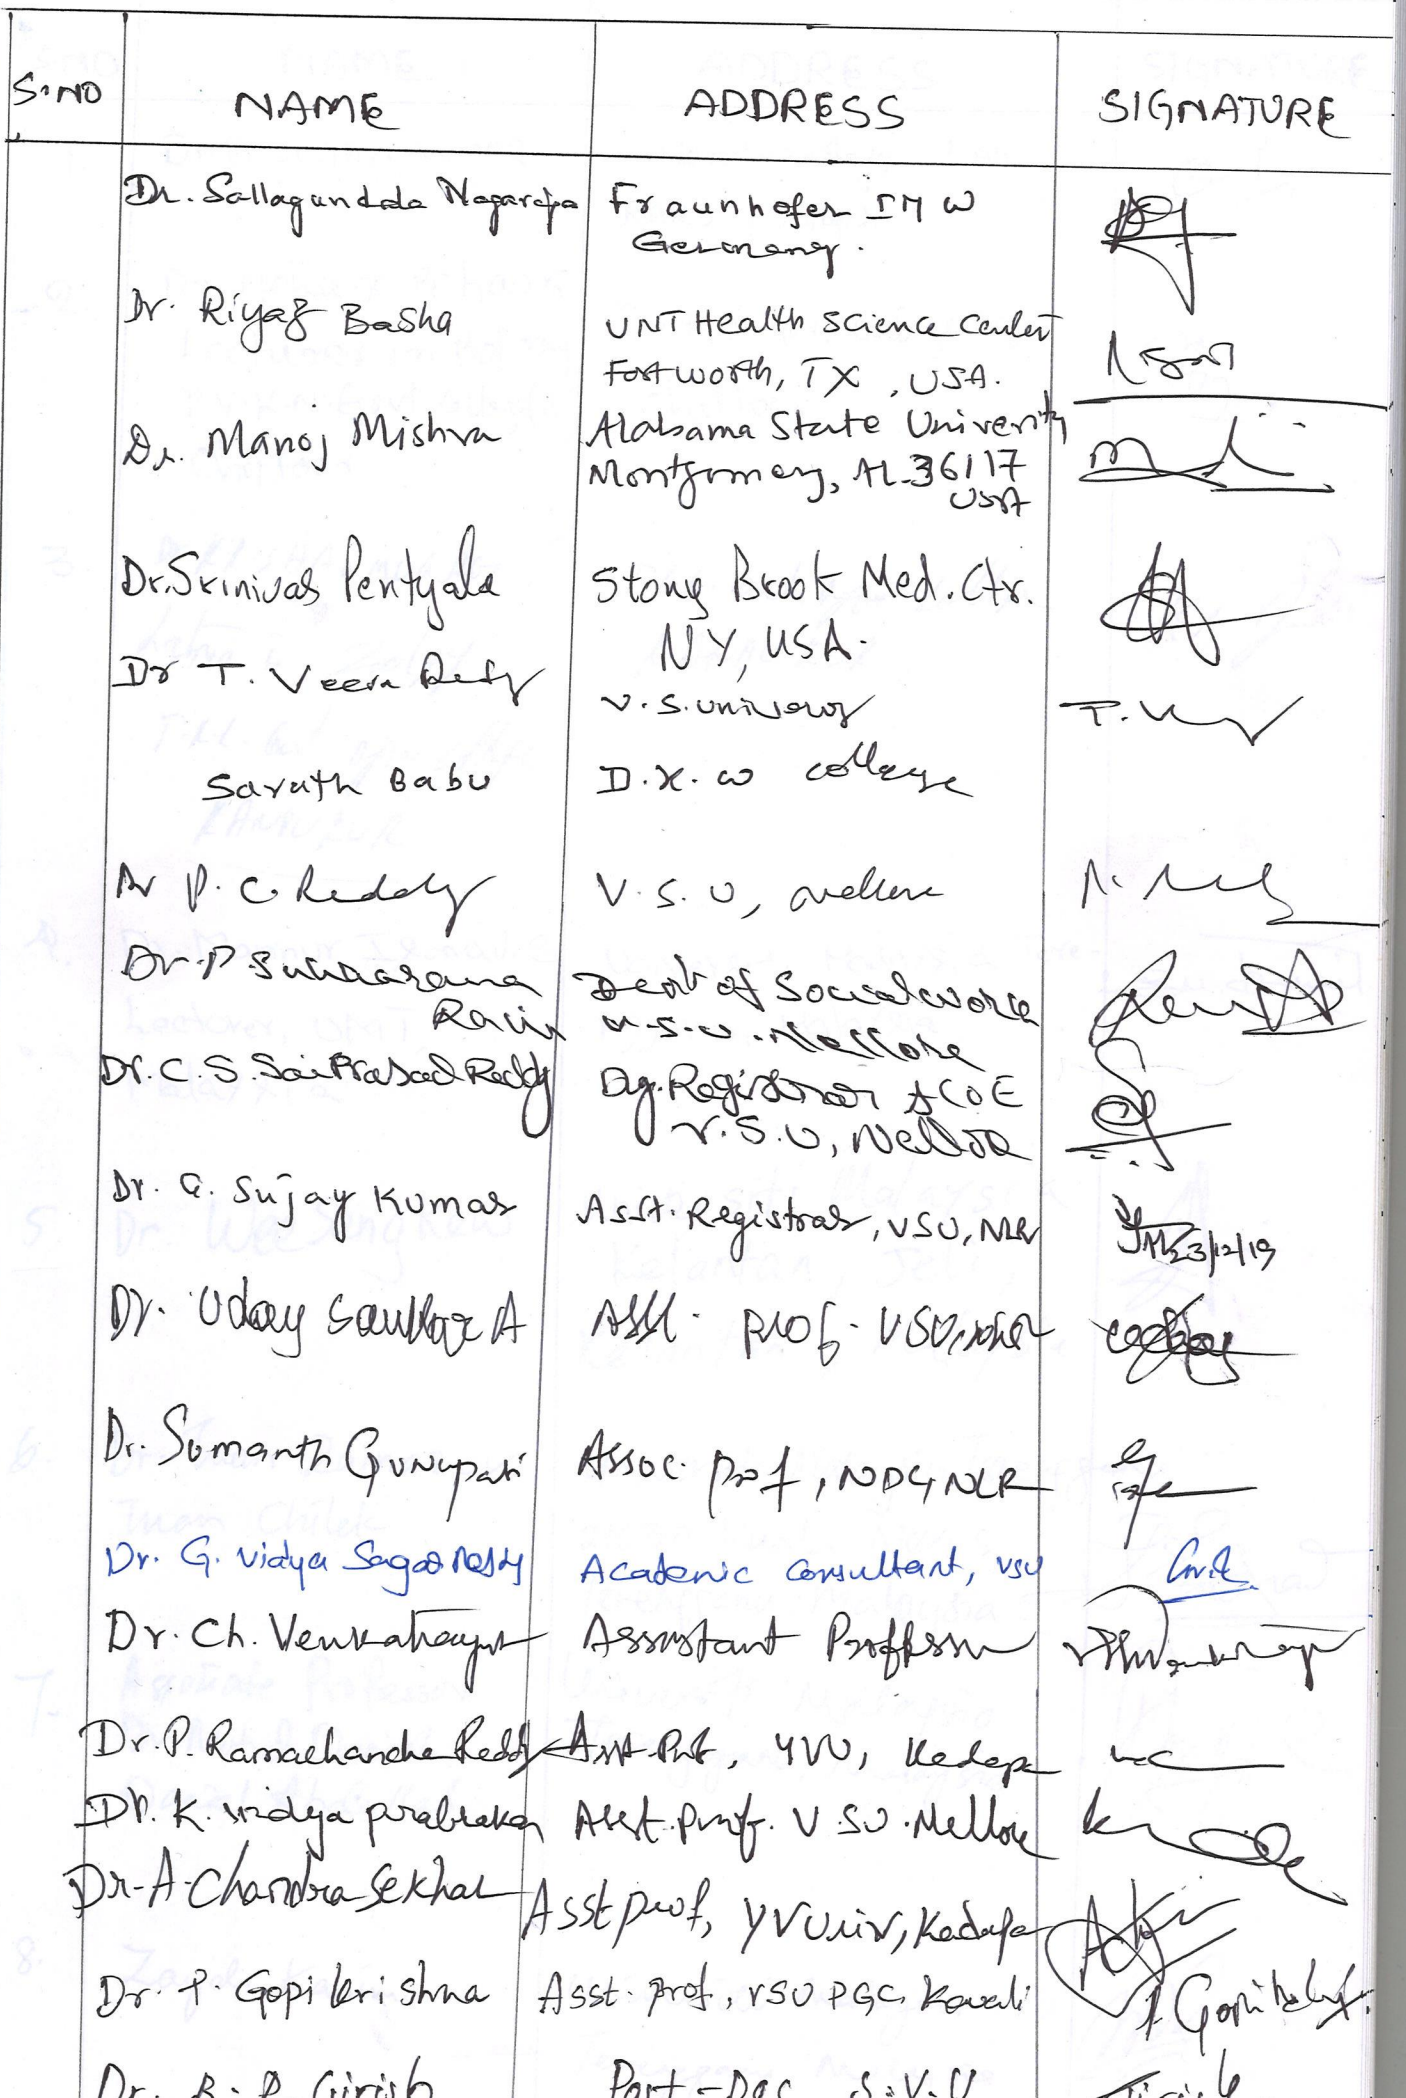 S.NO NAME ADDRESS SIGNATURE
Dr. Sallagundala Nagaraja Fraunhofer IMW
Germany.
Dr. Riyaz Basha UNT Health Science Center
Fort worth, TX, USA.
Dr. Manoj Mishra Alabama State University
Montgomery, AL 36117
USA
Dr. Srinivas Pentyala Stony Brook Med. Ctr.
NY, USA.
Dr T. Veera Reddy V.S. University
Sarath Babu D.K.W College
Dr P. C Reddy V.S.U, Nellore
Dr. P. Dept of Social work
V.S.U. Nellore
Dr. C. S. Sai Prasad Reddy Dy. Registrar ACOE
V.S.U, Nellore
Dr. G. Sujay Kumar Asst. Registrar, VSU, NLR 23/12/19
Dr. Uday Sankar A Asst. Prof. VSU, NLR
Dr. Sumanth Gunupati Assoc. Prof, NDC, NLR
Dr. G. Vidya Sagar Reddy Academic Consultant, VSU
Dr. Ch. Venkatrayulu Assistant Professor
Dr. P. Ramachandra Reddy Asst. Prof, YVU, Kadapa
Dr. K. Vidya prabhakar Asst. Prof. V.S.U. Nellore
Dr. A. Chandra Sekhar Asst prof, YV Univ, Kadapa
Dr. P. Gopikrishna Asst. Prof, VSU PGC, Kavali
Dr. B. P. Girish Post-Doc S.V.U Girish